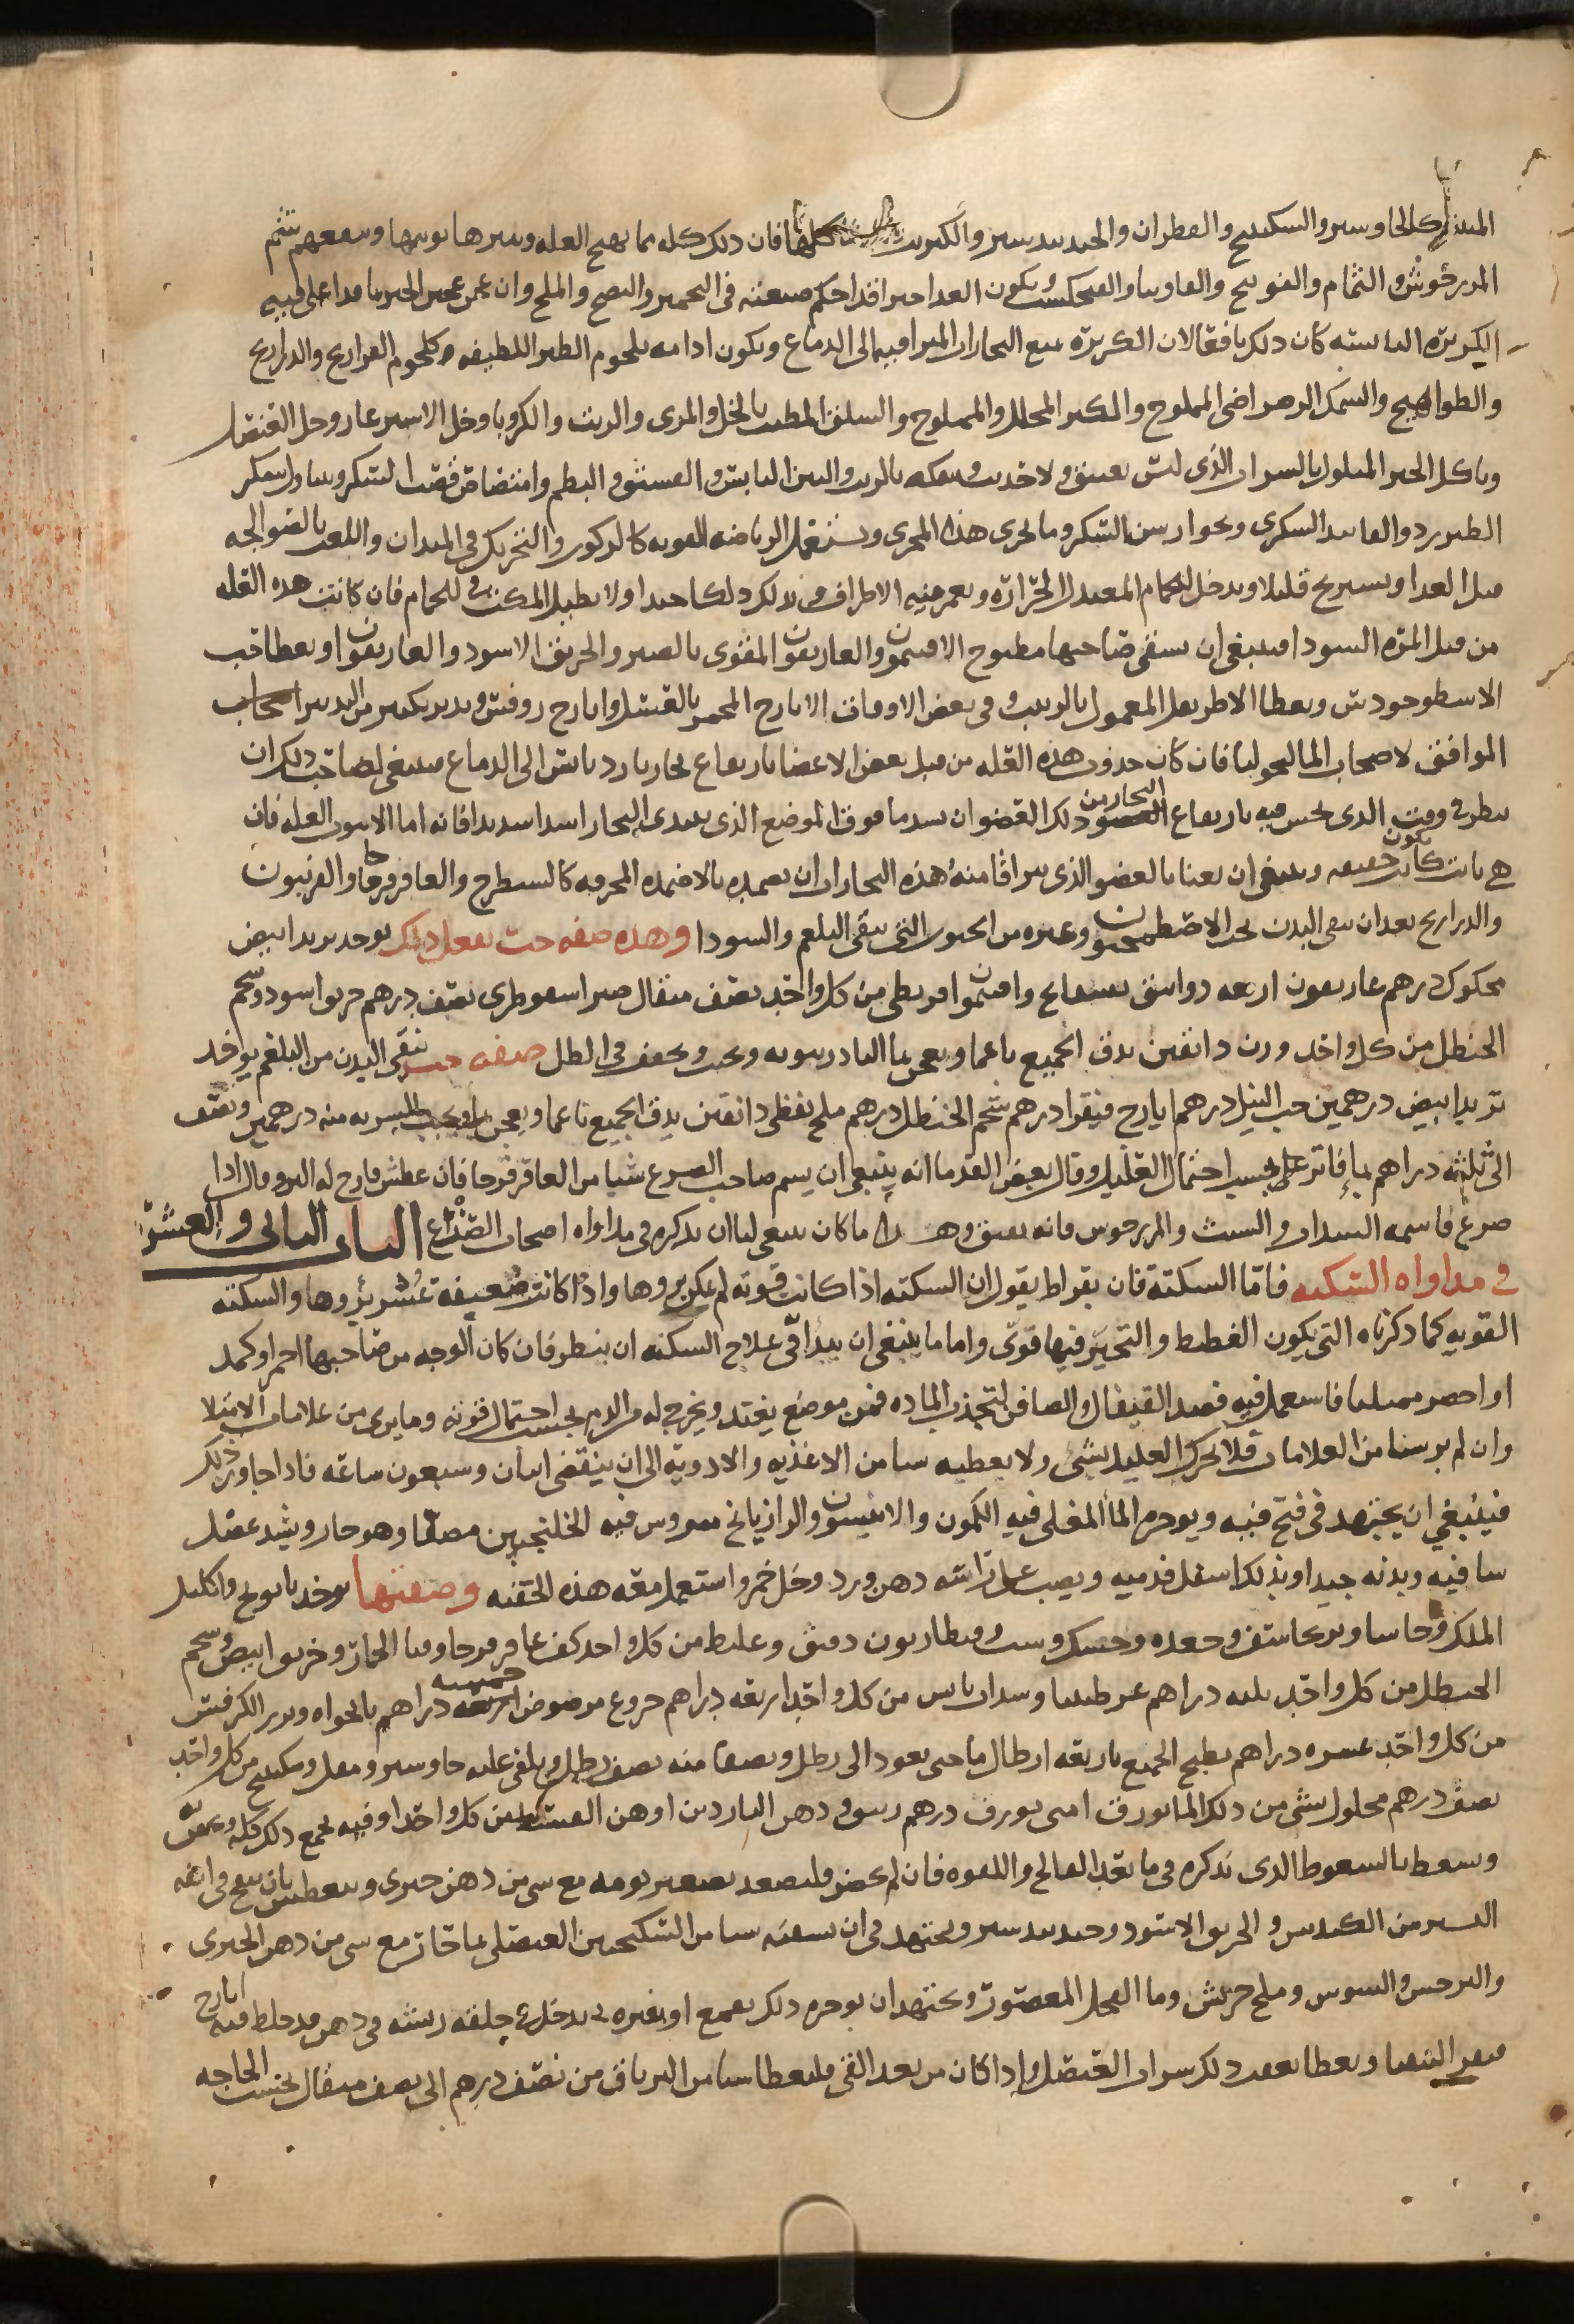 كالجاوسير والسكبينج والقطران والجندبيدستر والكبريت كلها فان ذلك كله مما يهيج العله وينبرها بويها وينفعهم شم
المرزجوش والنمام والفوتنج والفاوينا والفنجكشت ويكون الغدا خبزا قد احكم صنعته في التخمير والنضج والملح وان عجن عجين الخبز بما قد اغلى فيه
الكزبرة اليابسه كان ذلك نافعا لان الكزبرة تمنع البخارات المتراقيه الى الدماغ ويكون ادامه بلحوم الطير اللطيفه كلحوم الفراريج والدراريج
والطواهيج والسمك الرضراضى المملوح والكبر المخلل والمملوح والسلق المطيب بالخل والمرى والزيت والكرويا وخل الاشترغاز وخل العنصل
وياكل الخبز المبلول بالشراب الذى ليس بعتيق ولا حديث وتنقله بالزبيب والتين اليابس والفستق والبطم وامتصاص قصب السكر ويتناول سكر
الطبرزد والفانيد السكرى وجوارشن السكر وما يجرى هذا المجرى ويستعمل الرياضه القويه كالركوب والتحريك في الميدان واللعب بالصوالجه
قبل الغدا ويستريح قليلا ويدخل الحمام المعتدل الحرارة ويغمر فيه الاطراف ويدلك دلكا جيدا ولا يطيل المكث في الحمام فان كانت هذه العله
من قبل المرة السودا فينبغى ان يسقى صاحبها مطبوخ الافتيمون والغاريقون المقوى بالصبر والخربق الاسود والغاريقون او يعطا حب
الاسطوخودس ويعطا الاطريفل المعمول بالزبيب وفى بعض الاوقات الايارج المخمر بالعسل وايارج روفس ويدبر بكثير من التدبير
الموافق لاصحاب الماليخوليا فان كان حدوث هذه العله من قبل بعض الاعضا بارتفاع بخار بارد يابس الى الدماغ فينبغى لصاحب ذلك ان
ينظر في وقت الذى يحس فيه بارتفاع البخار من ذلك العضو ان يشد ما فوق الموضع الذى يبتدى البخار شدا شديدا فانه اما الا تنوب العله فان
هي نابت كانت خفيفه وينبغى ان يعنا بالعضو الذى يتراقا منه هذه البخارات ان يضمده بالاضمده المحرقه كالشيطرج والعاقرقرحا والفربيون
والدراريح بعد ان ينقى البدن بحب الاصطمحيقون وغيره من الحبوب التى تنقى البلغم والسودا وهذه صفه حب يفعل ذلك يوخذ تربد ابيض
محكوك درهم غاريقون اربعه دوانيق بسفايج وافتيمون اقريطى من كل واحد نصف مثقال صبر اسقوطرى نصف درهم خربق اسود وشحم
الحنظل من كل واحد وزن دانقين يدق الجميع ناعما ويعجن بما البادرنبويه ويحبب ويجفف في الظل صفه حب ينقى البدن من البلغم يوخذ
تربد ابيض درهمين حب النيل درهم ايارج فيقرا درهم شحم الحنظل درهم ملح نفطى دانقين يدق الجميع ناعما ويعجن بما ويحبب الشربه منه درهمين ونصف
الى ثلثه دراهم بما فاتر على حسب احتمال العليل وقال بعض القدما انه ينبغى ان يشم صاحب الصرع شيا من العاقرقرحا فان عطش فارج له البرو وقال اذا
صرع فاشمه السداب والشبث والمرزجوش فانه يفيق وهذا ما كان ينبغى لنا ان نذكره في مداواه اصحاب الصرع الباب الثانى والعشرون
في مداواه السكته فاما السكتة فان بقراط يقول ان السكته اذا كانت قويه لم يمكن بروها واذا كانت ضعيفة عسر بروها والسكته
القويه كما ذكرناه التى يكون الغطيط والتحير فيها قوى واما ما ينبغى ان يبدا في علاج السكته ان ينظر فان كان الوجه من صاحبها احمر او كمد
او اخضر ممتليا فاستعمل فيه فصد القيفال والصافن لتجذب الماده من موضع بعيد ويخرج له من الدم بحسب احتمال قوته وما يرى من علامات الامتلا
وان لم يرشيا من العلامات فلا يحرك العليل بشى ولا يعطيه شيا من الاغذيه والادويه الى ان ينقضى اثنان وسبعون ساعه فاذا جاوز ذلك
فينبغى ان يجتهد فى فتح فيه ويوجره الما المغلى فيه الكمون والانيسون والرازيانج ممروس فيه الخلنجبين مصفا وهو حار ويشد عضل
ساقيه ويدنه جيدا ويدلك اسفل قدميه ويصب على راسه دهن ورد وخل خمر واستعمل معه هذه الحقنه وصفتها يوخذ بابونج واكليل
الملك وحاشا وبرنجاسف وجعده وحسك وشبث وقنطاريون دقيق وغليظ من كل واحد كف عاقرقرحا وقثا الحمار وخربق ابيض وشحم
الحنظل من كل واحد ثلثه دراهم عرطنيثا وسداب يابس من كل واحد اربعه دراهم خروع مرضوض خمسه دراهم نانخواه وبزر الكرفس
من كل واحد عشره دراهم يطبخ الجميع باربعه ارطال ما حتى يعود الى رطل ويصفا منه نصف رطل ويلقى عليه جاوشير ومقل وسكبينج من كل واحد
نصف درهم محلول بشى من ذلك الما بورق ارمنى بورق درهم زنبق ودهن الناردين او دهن القسط من كل واحد اوقيه يجمع ذلك كله ويحقن به
ويسعط بالسعوط الذى نذكره في ما بعد الفالج واللقوه فان لم يحضر فليسعد بعصير ثومه مع شى من دهن خيرى ويعطس بان ينفخ في انفه
اليسير من الكندس والخربق الاسود وجندبيدستر ويجتهد في ان يسقيه شيا من السكنجبين العنصلى بما حار مع شى من دهن الخيرى
والنرجس والسوسن وملح جريش وما الفجل المعصور ويجتهد ان يوجره ذلك بقمع او بغيره او يدخل في حلقه ريشه في دهن قد خلط فيه ايارج
فيقرا ليتقيا ويعطا بعقب ذلك شراب العنصل واذا كان من بعد القى فليعطا شيا من الترياق من نصف درهم الى نصف مثقال بحسب الحاجه